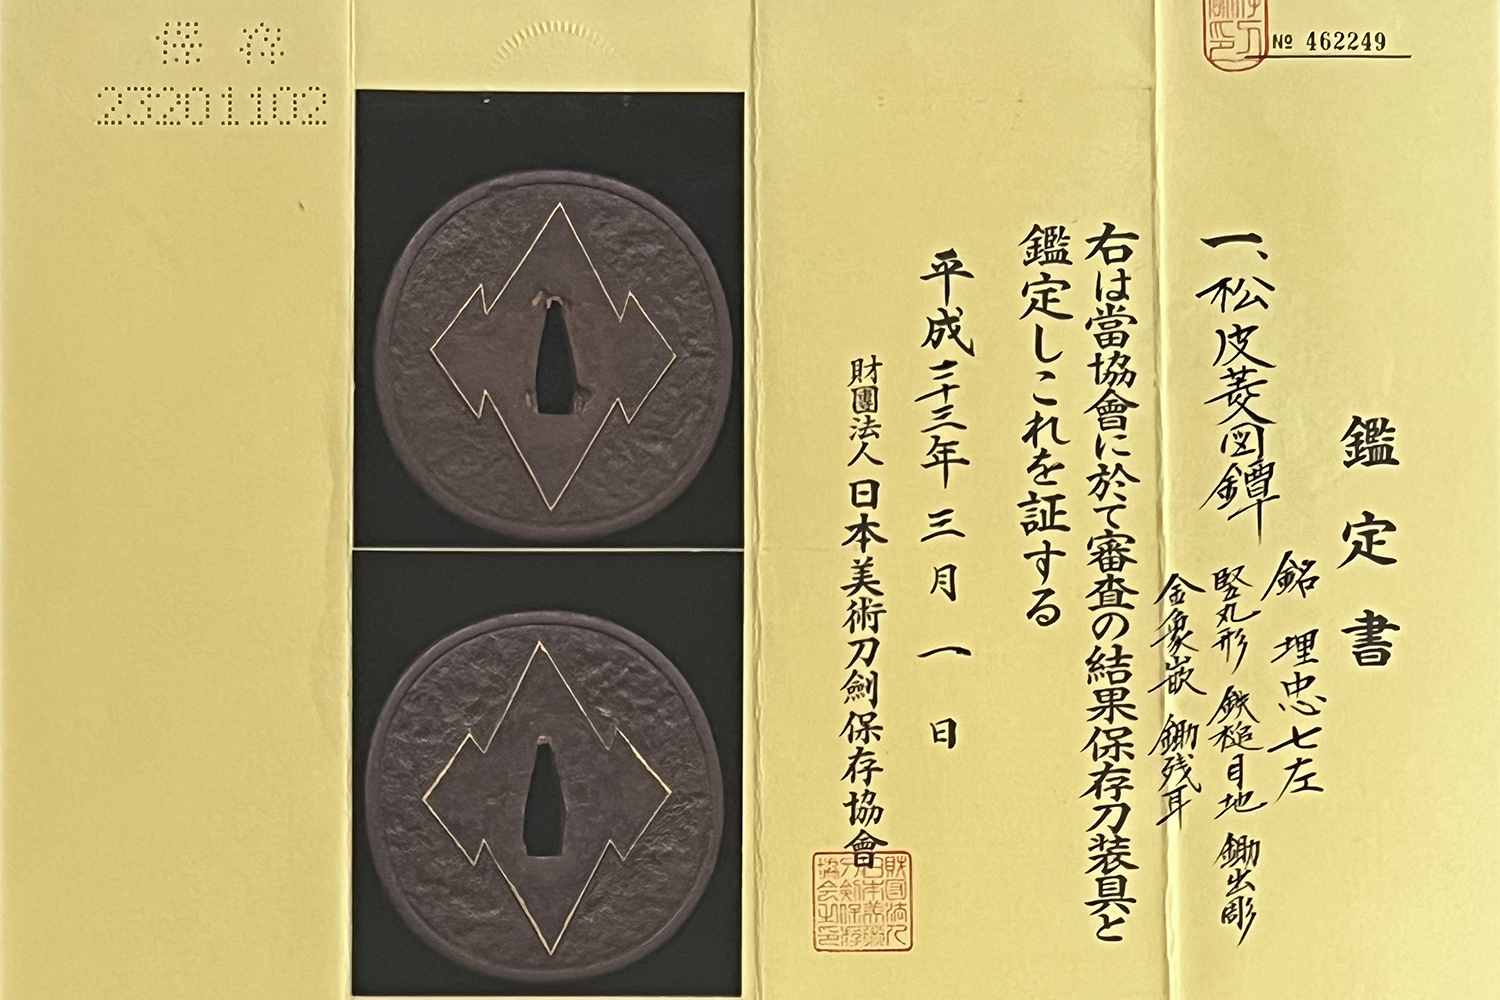 № 462249
鑑定書
一、松皮菱図鐔
銘 埋忠七左
竪丸形 鉄槌目地 鋤出彫
金象嵌 鋤残耳
右は當協會に於て審査の結果保存刀装具と
鑑定しこれを証する
平成二十三年三月一日
財團法人日本美術刀劍保存協會
保存
23201102